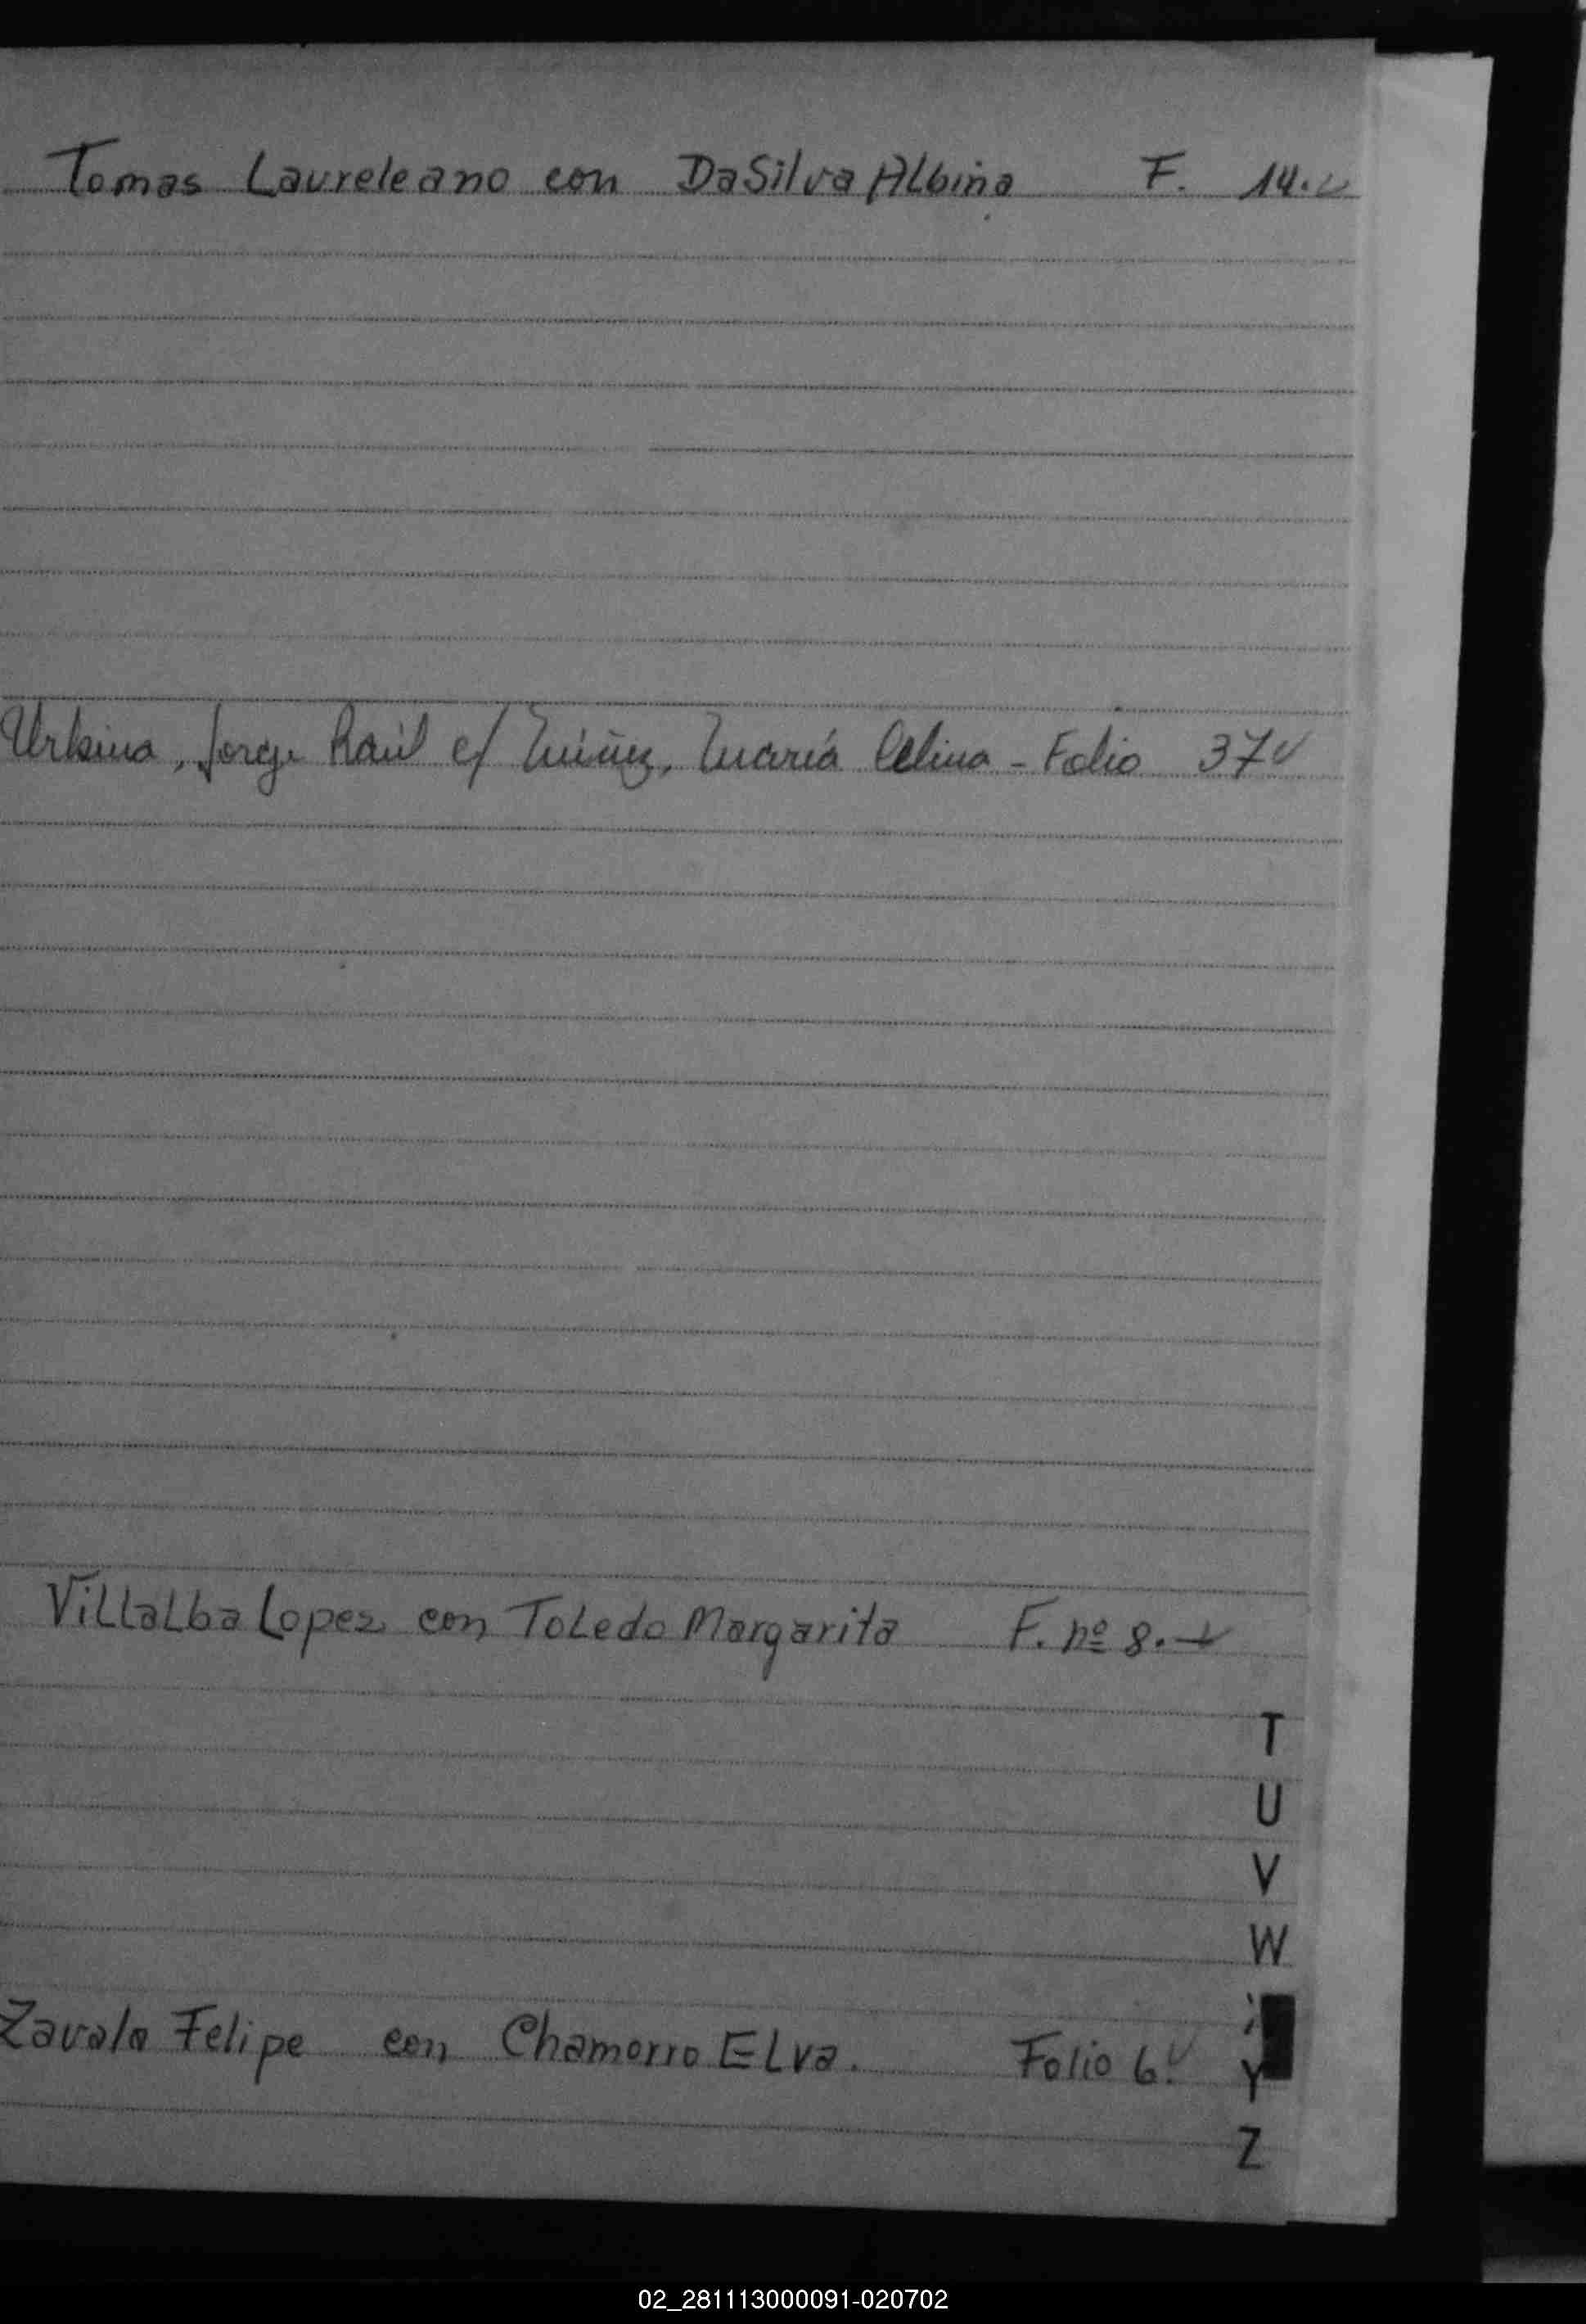 Tomas Laureleano con DaSilva Albina F. 14.
Urbina, Jorge Raúl c/ Núñez, María Celina - Folio 37
Villalba Lopez con Toledo Margarita F. nº 8.
T
U
V
W
Zavala Felipe con Chamorro Elva. Folio 6.
Y
Z
02_281113000091-020702